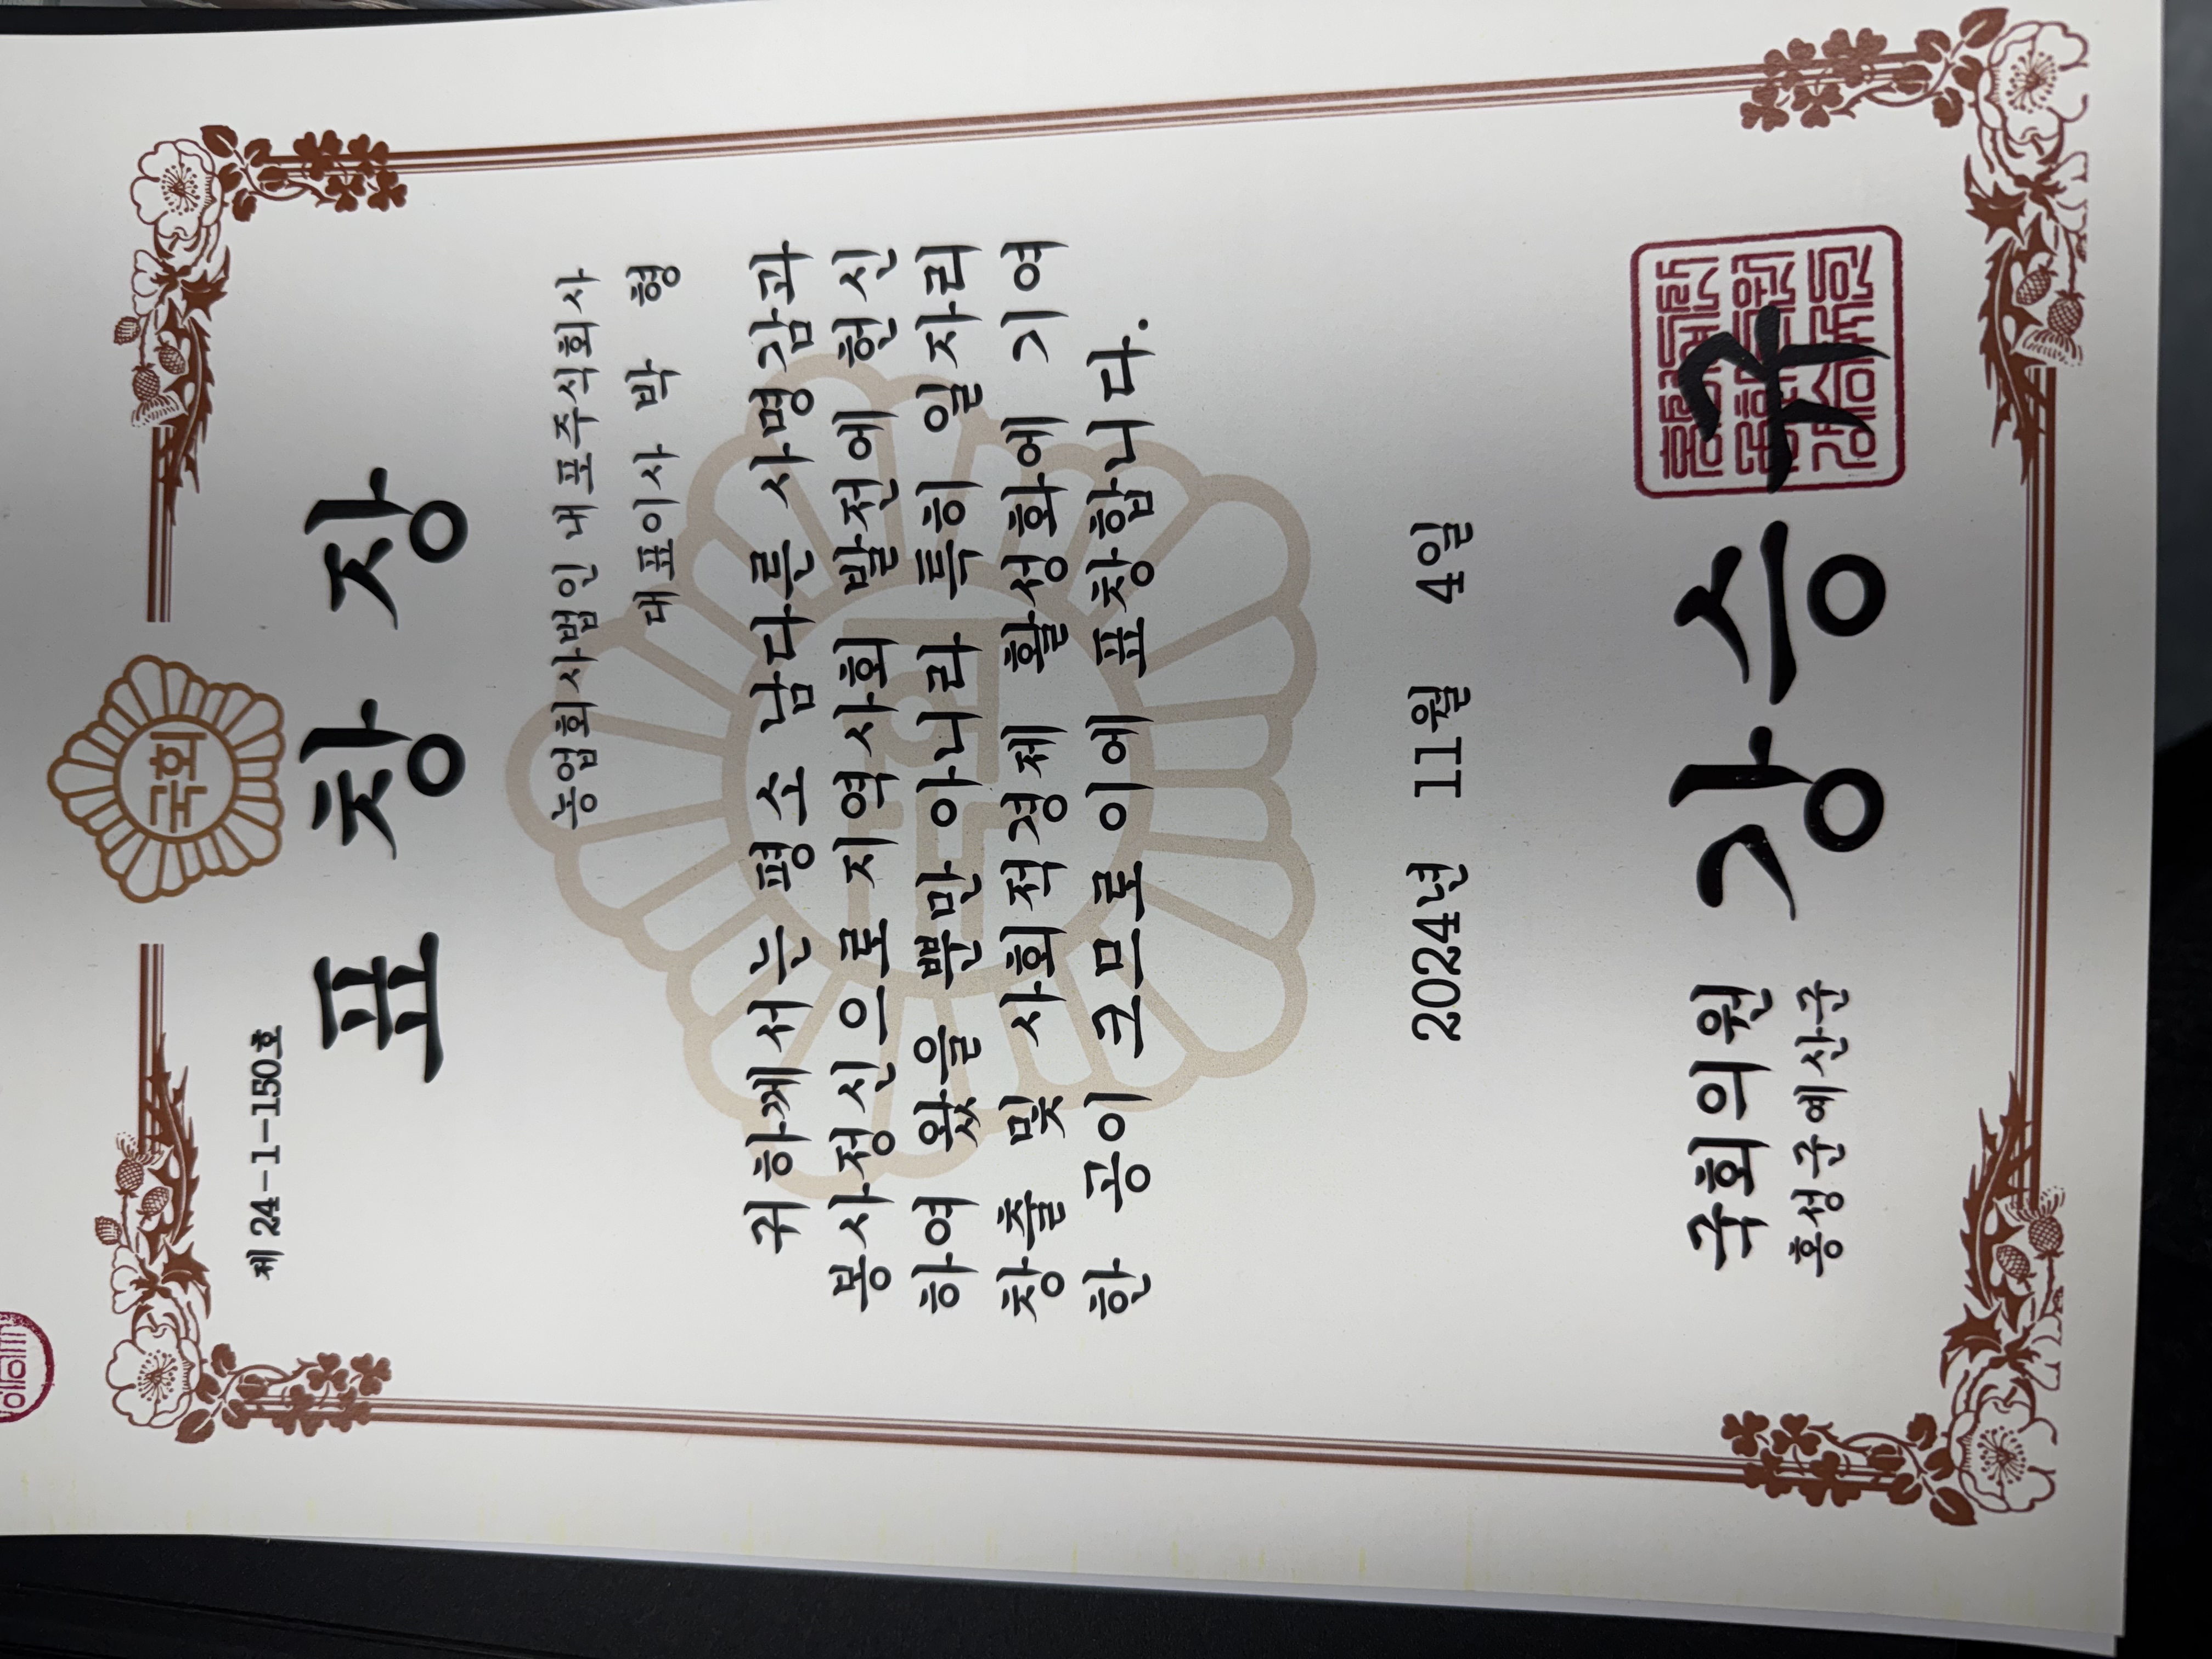 국회
제 24-1-150호
표 창 장
농업회사법인 내포주식회사
대표이사 박 형
귀하께서는 평소 남다른 사명감과
봉사정신으로 지역사회 발전에 헌신
하여 왔을 뿐만 아니라 특히 일자리
창출 및 사회적경제 활성화에 기여
한 공이 크므로 이에 표창합니다.
2024년 11월 4일
국회의원 강승규
홍성군예산군